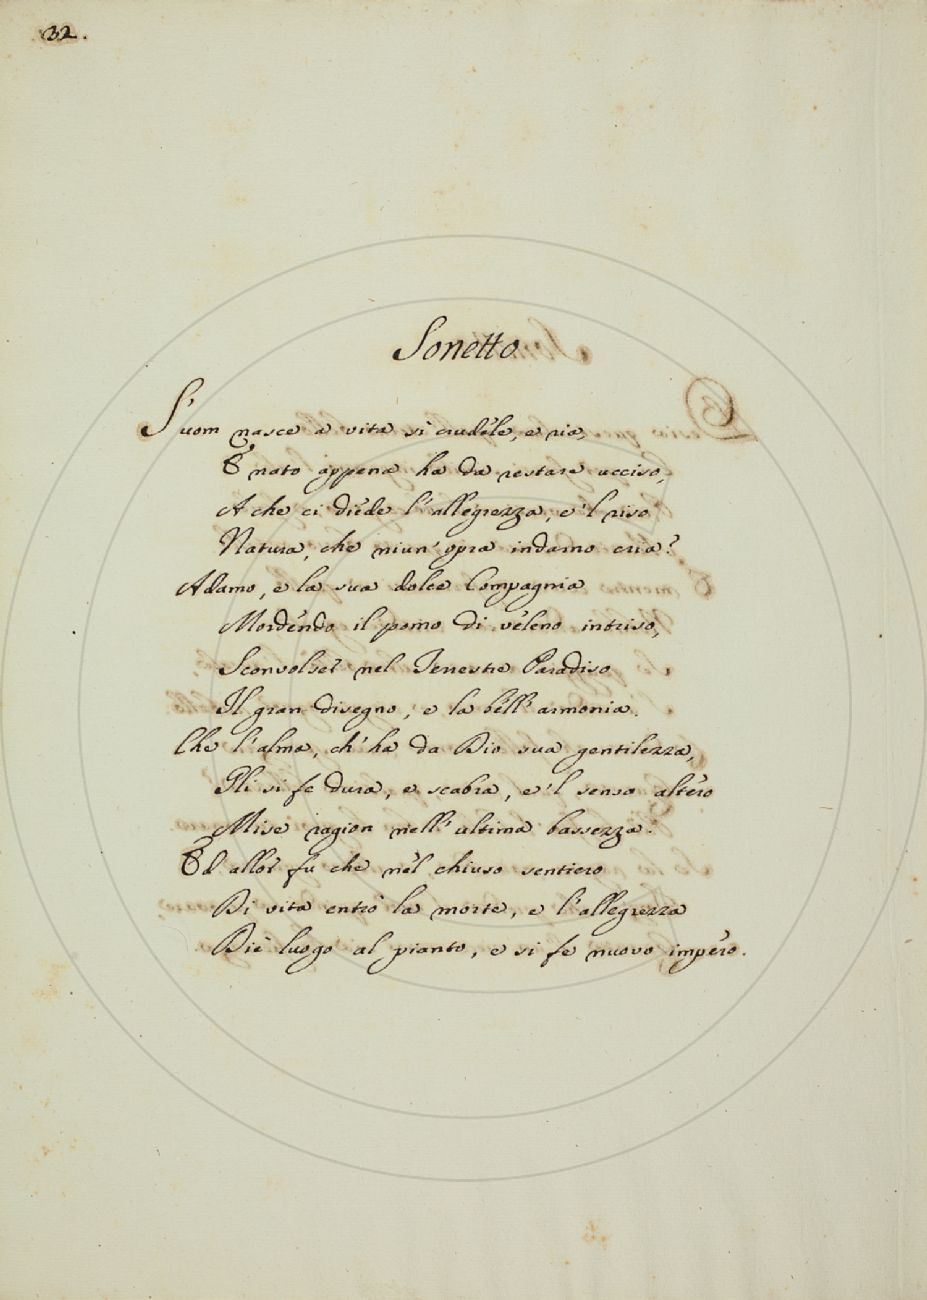 32.
Sonetto
S'uom nasce a vita sì crudéle, e ria,
E nato appena ha da restare ucciso,
A che ci diéde l'allegrezza, e'l riso
Natura, che niun' opra indarno cria?
Adamo, e la sua dolce Compagnia
Mordéndo il pomo di véleno intriso,
Sconvolser nel Terrestre Paradiso
Il gran disegno, e la béll' armonia.
Che l'alma, ch'ha da Dio sua gentilezza,
Gli si fe dura, e scabra, e'l senso altéro
Mise ragion nell' ultima bassezza.
Ed allor fu che nél chiuso sentiero
Di vita entrò la morte, e l'allegrezza
Diè luogo al pianto, e si fe nuovo impéro.